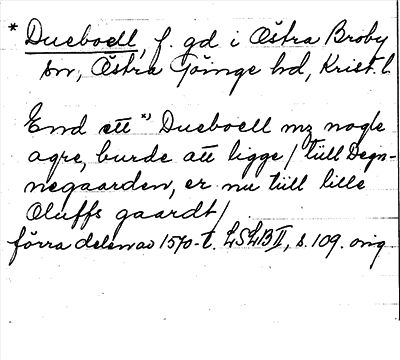 * Dueboell, f. gd i Östra Broby
sn, Östra Göinge hd, Krist. l.
End ett *) Dueboell mz nogle
agre, burde att ligge / tiill Degn-
negaarden, er nu tiill lille
Oluffs gaardt /
förra delen av 1570-t. LSLB II, s. 109. orig